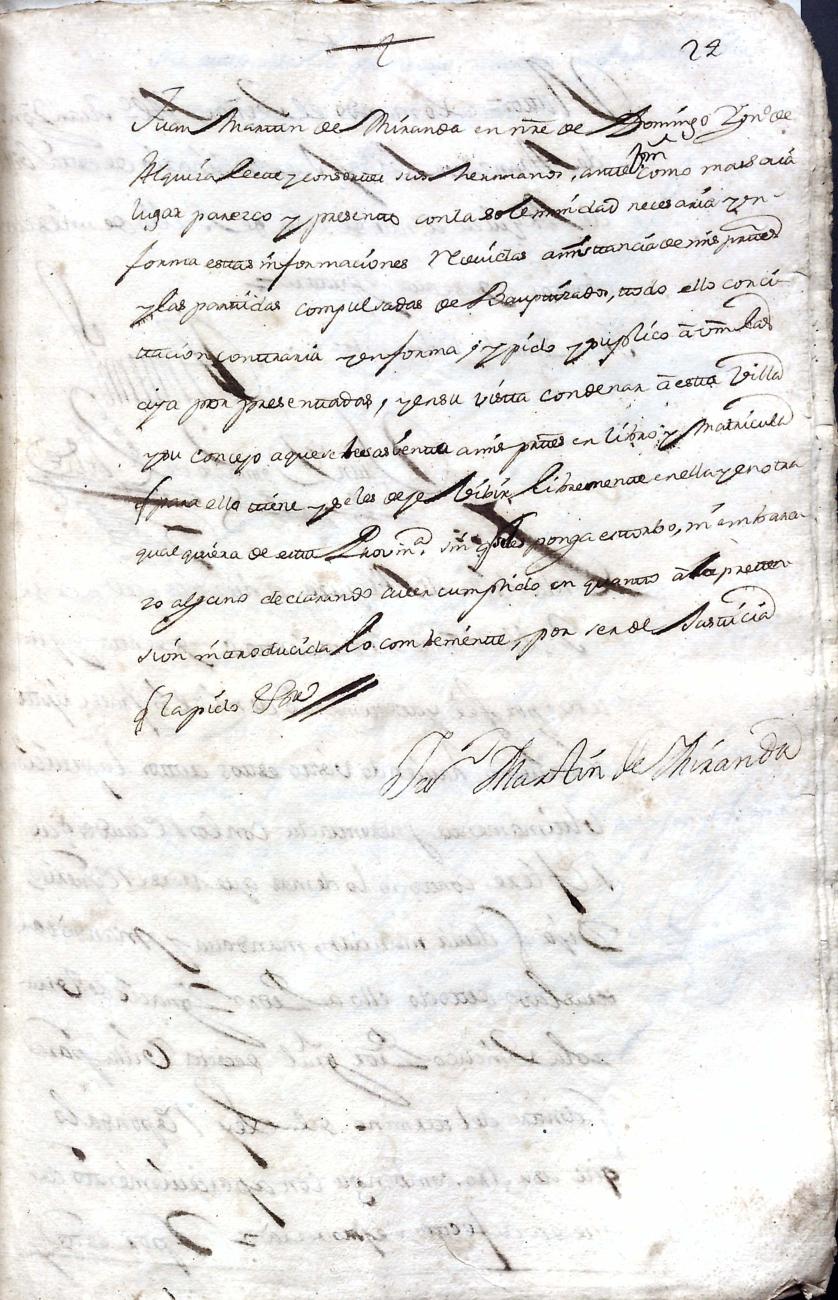 24
Juan Martin de Miranda en nre de Domingo Ygn.º de
Alquiza Leete y consortes sus hermanos, ante Vm como mas aia
lugar parezco y presento con la solemnidad necesaria y en
forma estas informaciones recividas a instancia de mis partes
y las partidas compulsadas de Bauptizados, todo ello con ci-
tacion contraria y en forma, y pido y suplico a Vm las
aya por presentadas, y en su vista condenar a esta Villa
y su concejo a que se les asiente a mis partes en libro y Matricula
q para ello tiene y se les deje Vibir libremente en ella y en otra
qualquiera de esta Provin.ª sin q se les ponga estorbo, ni embara-
zo alguno declarando aver cumplido en quanto a la preten-
sion introducida lo combeniente, por ser de Justicia
q la pido &
Ju.º Martin de Miranda